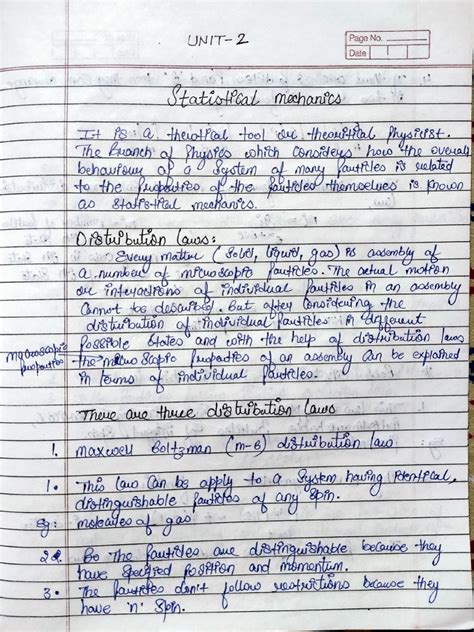 UNIT-2
Page No.
Date
Statistical mechanics
It is a therotical tool or theoritital Physicist.
The Branch of Physics which considers how the overall
behaviour of a system of many particles is related
to the Properties of the particles themselves is known
as statistical mechanics.
Distribution laws:
Every matter (solid, liquid, gas) is assembly of
a number of microscopic particles. The actual motion
or interactions of individual particles in an assembly
Cannot be described. But after considering the
distribution of individual particles in different
Possible states and with the help of distribution laws
macroscopic properties
the macroscopic properties of an assembly can be explained
in terms of individual Particles.
There are three distribution laws
1. maxwell Boltzman (m-B) distribution law
1. This law can be apply to a system having identical,
distinguishable particles of any spin.
eg: molecules of gas
2. The particles are distinguishable because they
have specified position and momentum.
3. The particles don't follow restrictions because they
have 'n' spin.